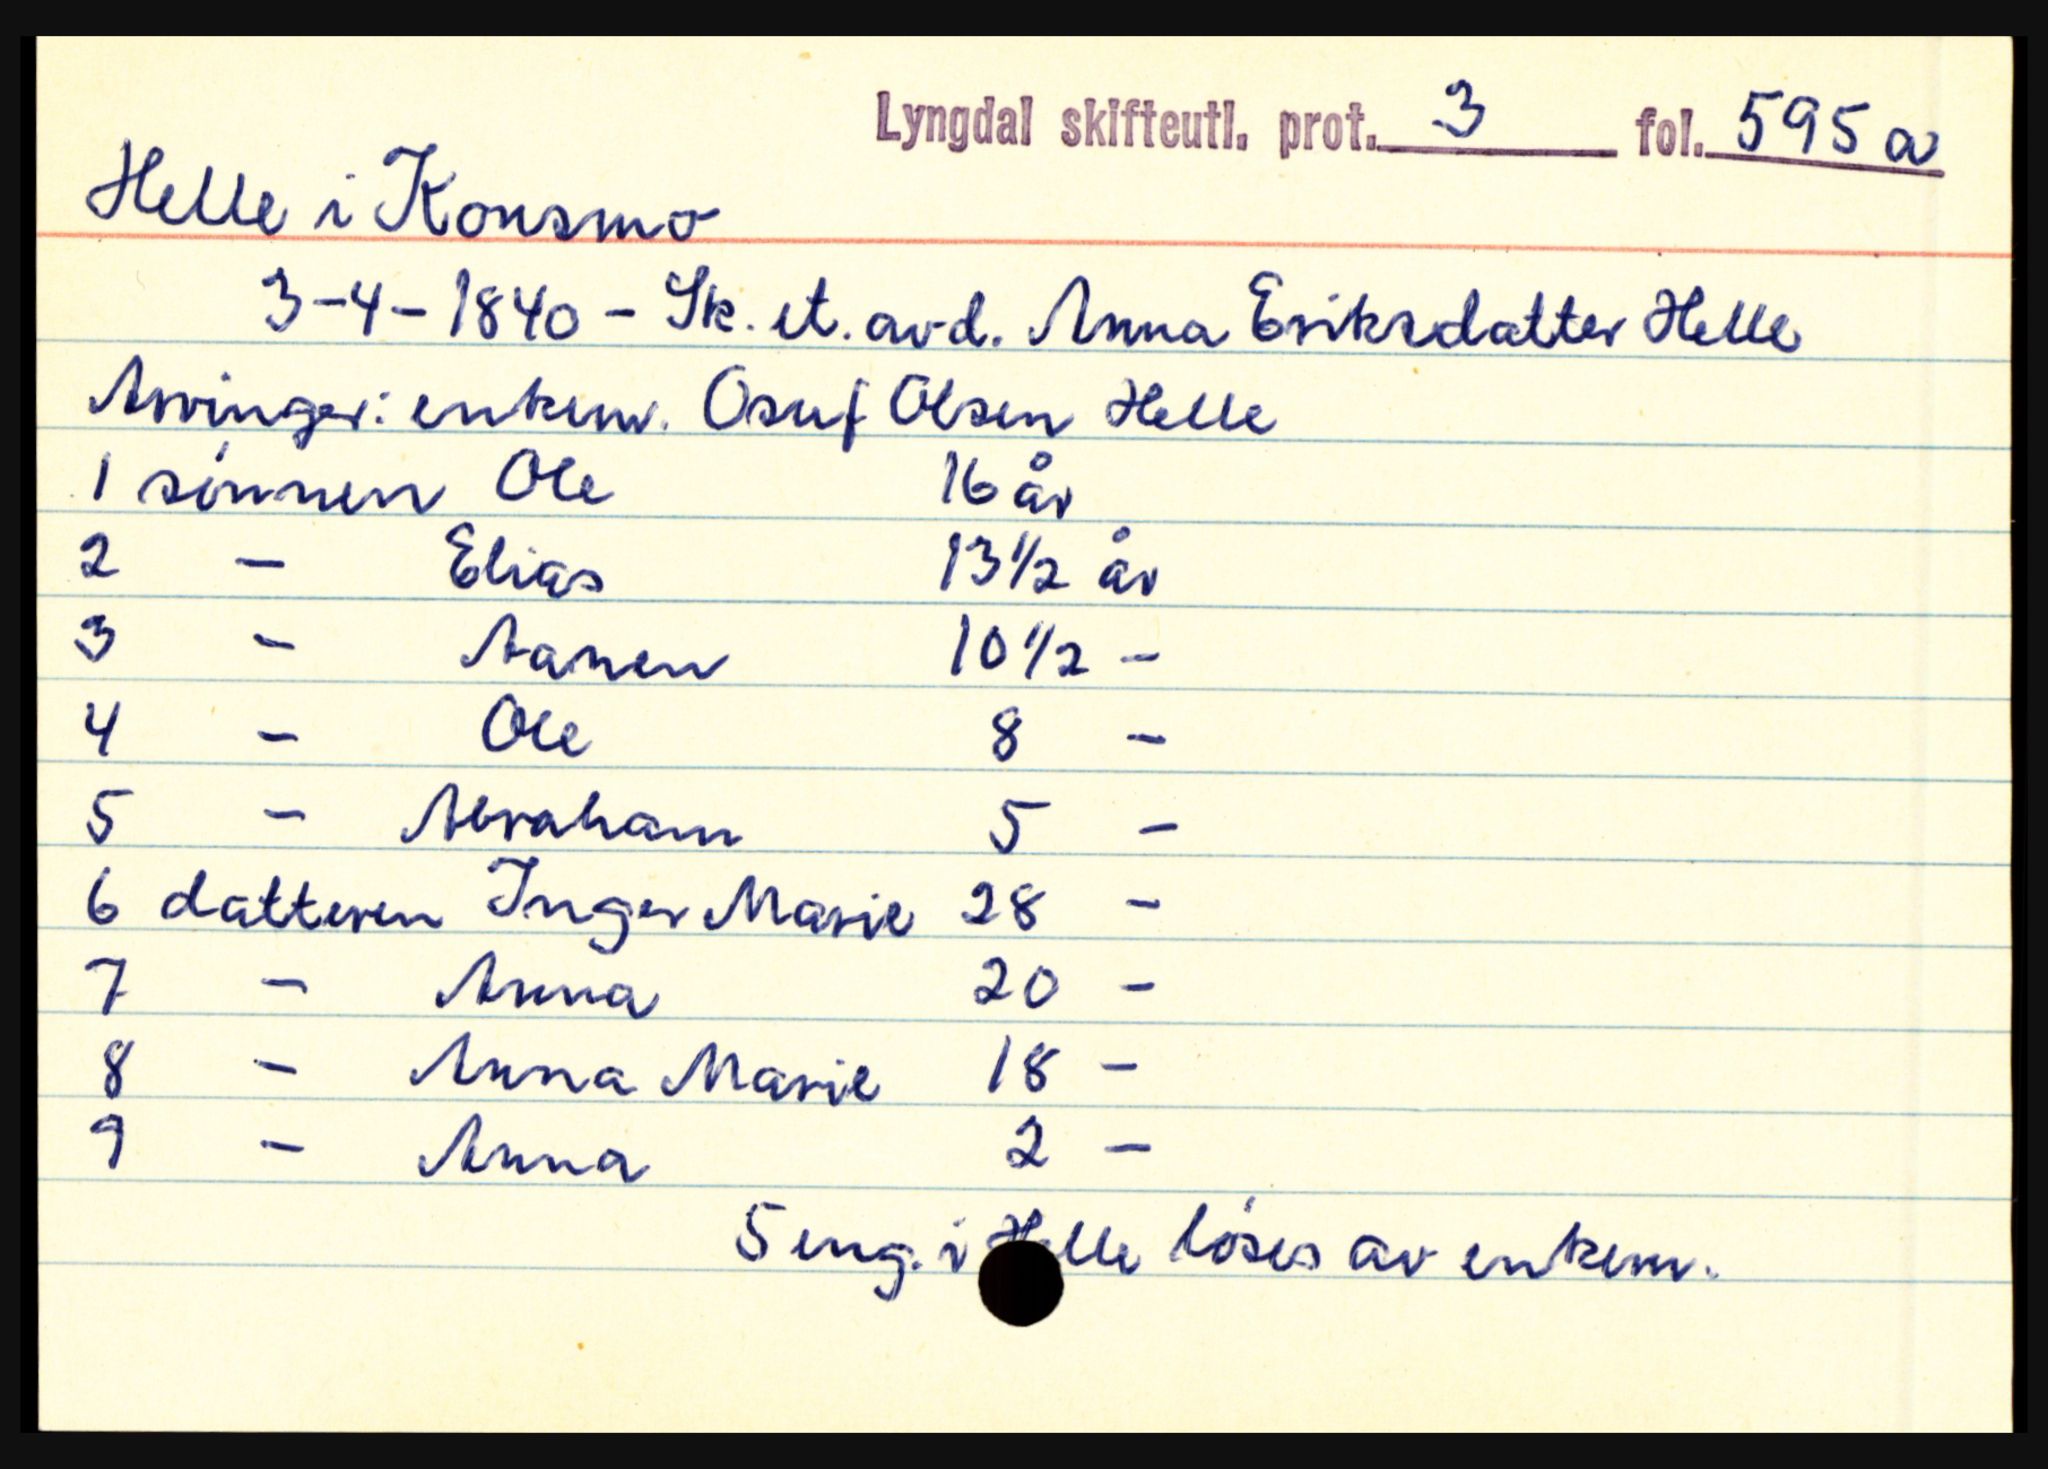 Lyngdal skifteutl. prot. 3 fol. 595 a
Helle i Konsmo
3-4-1840 - Sk. et. avd. Anna Eriksdatter Helle
Arvinger: enkem. Osuf Olsen Helle
1 sónnen Ole 16 år
2 - Elias 13 1/2 år
3 - Aanen 10 1/2 -
4 - Ole 8 -
5 - Abraham 5 -
6 datteren Inger Marie 28 -
7 - Anna 20 -
8 - Anna Marie 18 -
9 - Anna 2 -
5 eng. i Helle lóses av enkem.